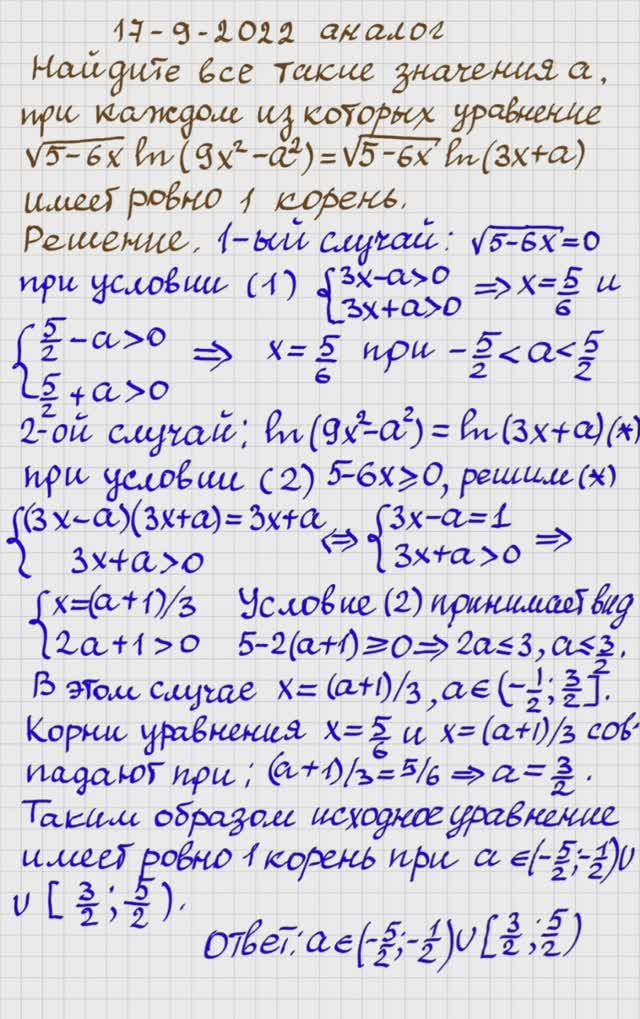 17-9-2022 аналог
Найдите все такие значения а,
при каждом из которых уравнение
√5-6x ln(9x²-a²)=√5-6x ln(3x+a)
имеет ровно 1 корень.
Решение. 1-ый случай: √5-6x=0
при условии (1) {3x-a>0 3x+a>0 ⇒ x=5/6 и
{5/2-a>0 5/2+a>0 ⇒ x=5/6 при -5/2<a<5/2
2-ой случай; ln(9x²-a²)=ln(3x+a)(*)
при условии (2) 5-6x≥0, решим(*)
{(3x-a)(3x+a)=3x+a 3x+a>0 ⇔ {3x-a=1 3x+a>0 ⇒
{x=(a+1)/3 2a+1>0 Условие (2) принимает вид 5-2(a+1)≥0⇒2a≤3, a≤3/2.
В этом случае x=(a+1)/3, a∈(-1/2; 3/2].
Корни уравнения x=5/6 и x=(a+1)/3 сов-
падают при; (a+1)/3=5/6 ⇒ a=3/2.
Таким образом исходное уравнение
имеет ровно 1 корень при a∈(-5/2;-1/2)∪
∪[3/2; 5/2).
Ответ: a∈(-5/2;-1/2)∪[3/2; 5/2)